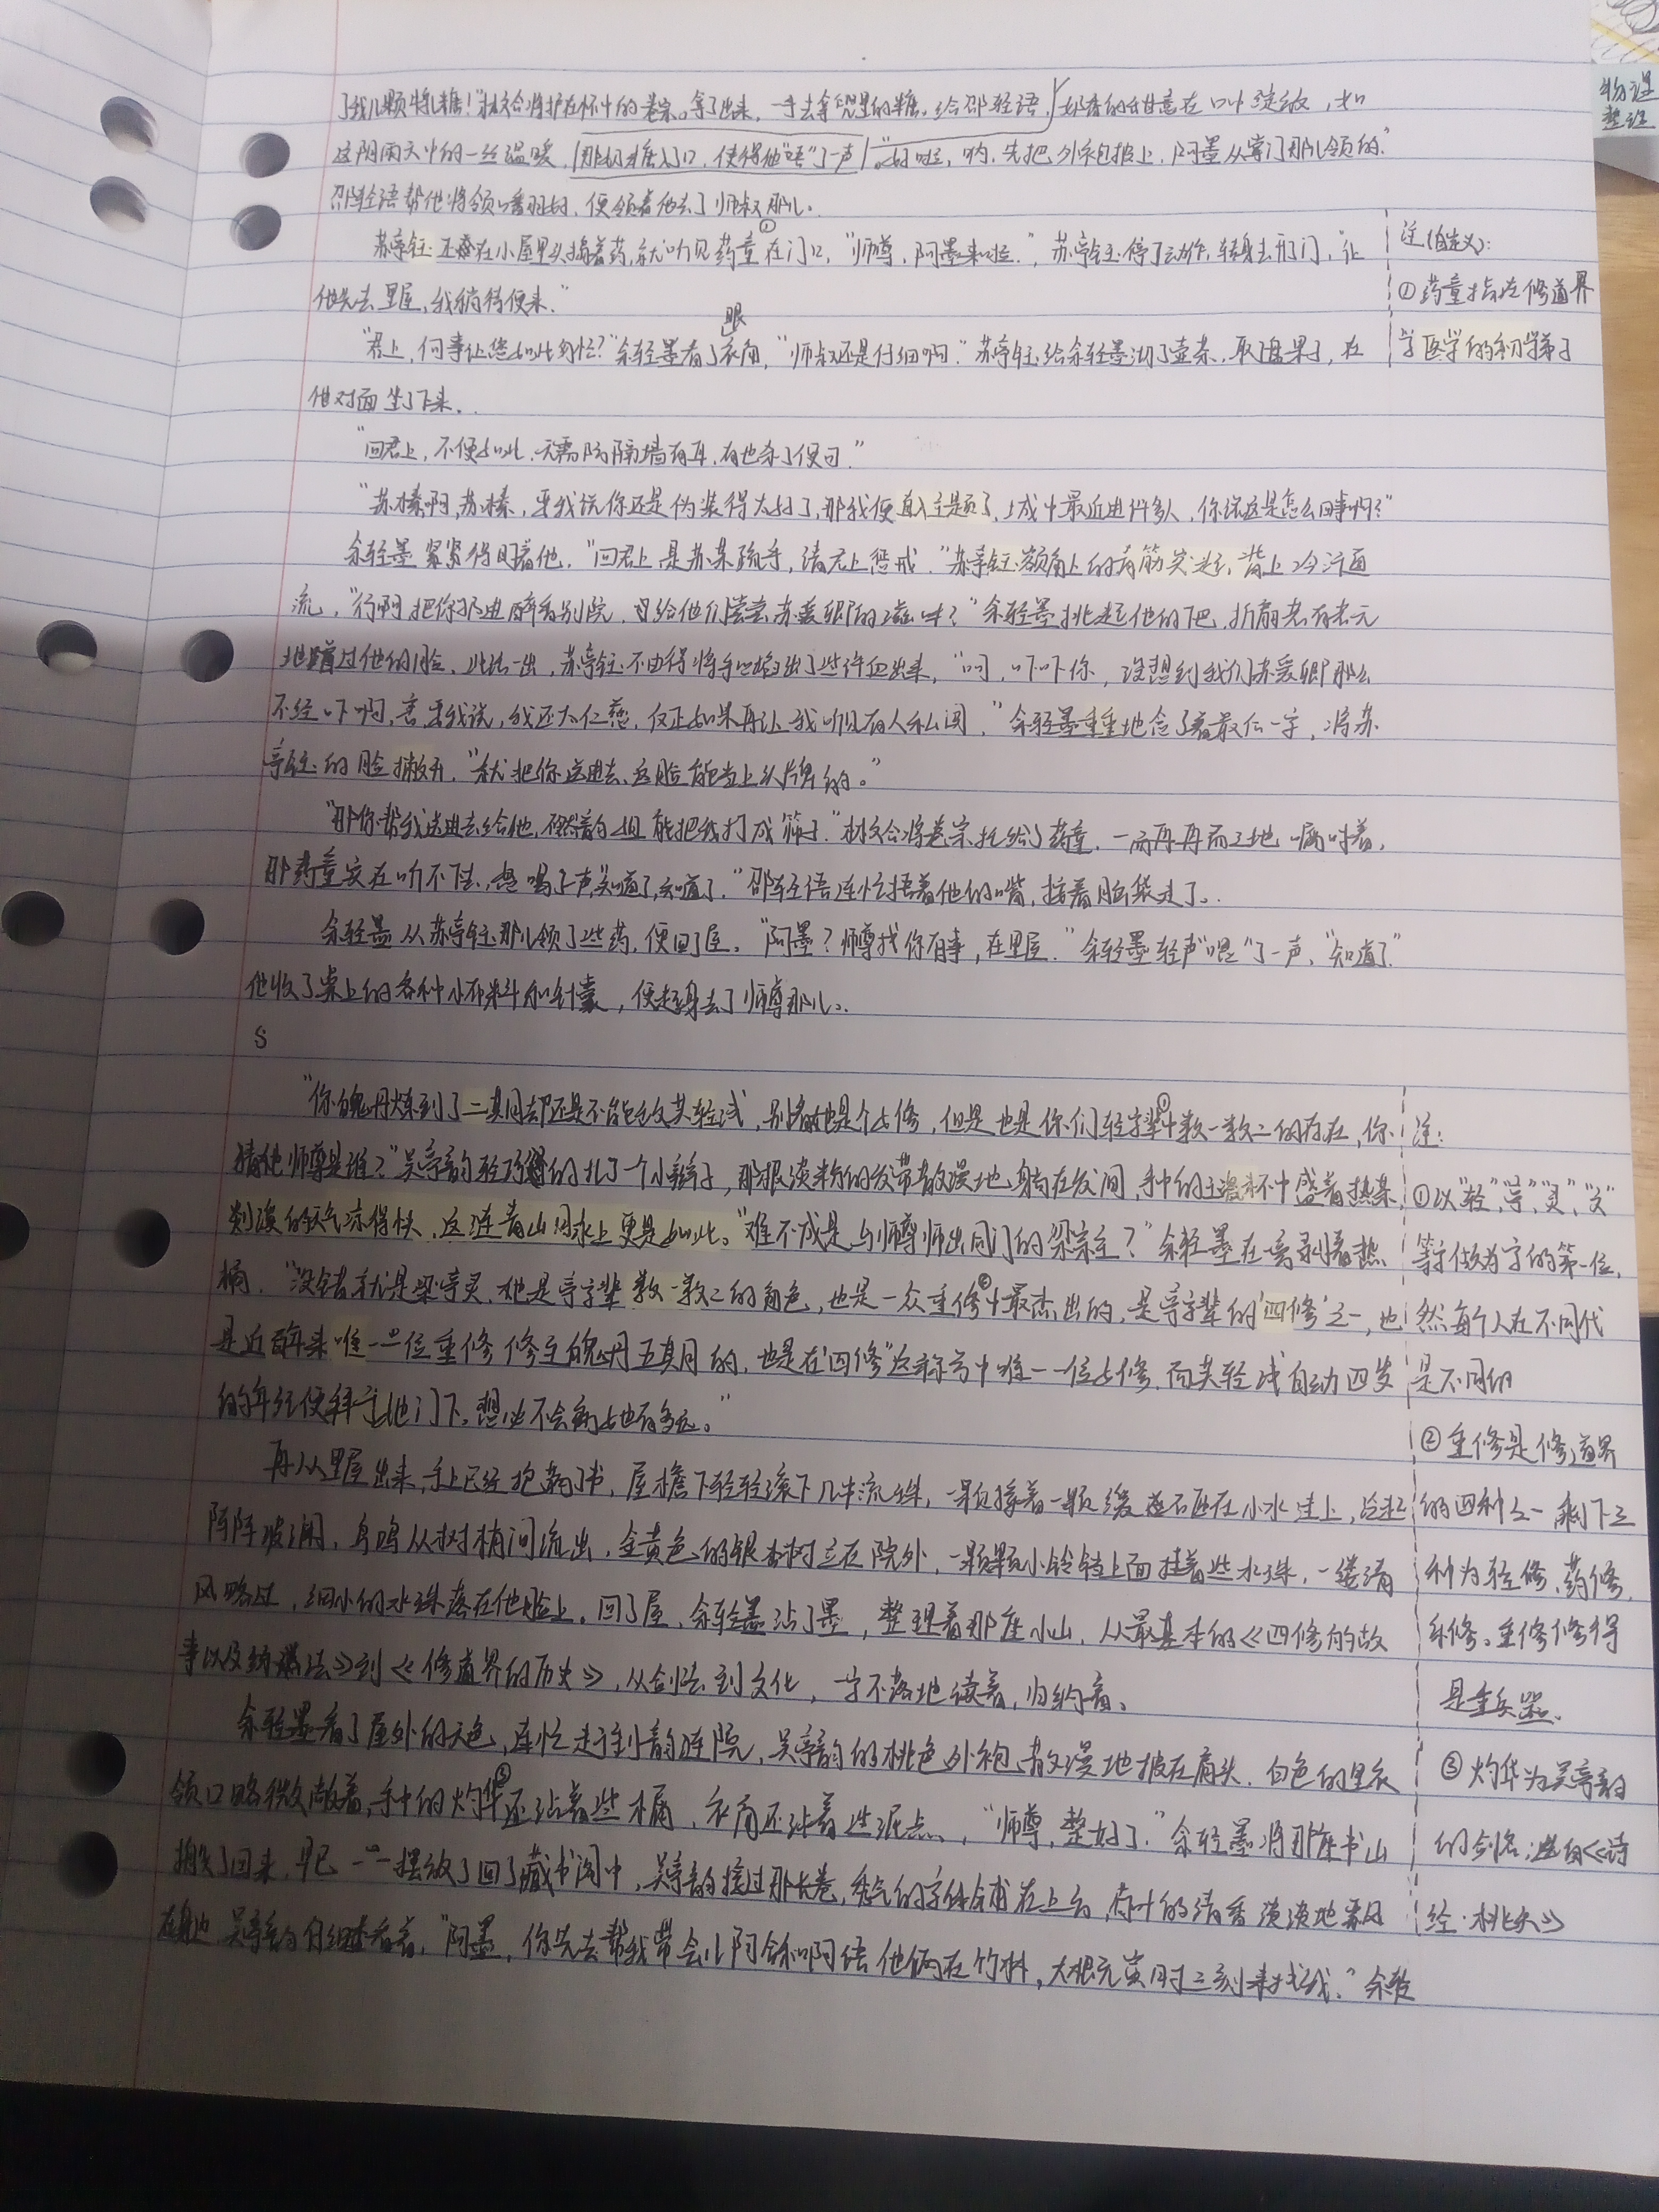 了我几颗牛乳糖！"林文合将护在怀中的卷宗拿了出来，一手去拿兜里的糖，给邵轻语，奶香的甜意在口中绽放，如
这阴雨天中的一丝温暖，那奶糖入了口，使得他"唔"了一声。"好啦，喏，先把外袍披上，阿墨从掌门那儿领的."
邵轻语帮他将领口番羽好，便领着他去了师叔那儿.
苏亭钰还在小屋里头捣着药，就听见药童①在门口，"师尊，阿墨来啦."，苏亭钰停了动作，转身去开门，"让
他先去里屋，我稍待便来."
"君上，何事让您如此匆忙？"余轻墨看了眼衣角，"师叔还是仔细啊."苏亭钰给余轻墨沏了壶茶，取了盘果子，在
他对面坐了下来.
"回君上，不便如此，无需防隔墙有耳，有也杀了便可."
"苏榛啊，苏榛，要我说你还是伪装得太好了，那我便直入主题了，城中最近进许多人，你说这是怎么回事啊？"
余轻墨紧紧得盯着他，"回君上是苏某疏手，请君上惩戒."苏亭钰额角上的青筋突起，背上冷汗直
流，"行啊把你扔进醉香别院，给他们尝尝苏爱卿的滋味？"余轻墨挑起他的下巴，折扇若有若无
地蹭过他的脸，此话一出，苏亭钰不由得将手心掐出了些许血出来，"呵，吓吓你，没想到我们苏爱卿那么
不经吓啊，要我说，我还太仁慈，仅正如果再让我听见有人私闯，"余轻墨重重地念了着最后一字，将苏
亭钰的脸撇开，"就把你送进去，这脸能当上头牌的。"
"那你帮我送进去给他，不然韵姐能把我打成筛子."林文合将卷宗托给了药童，一而再再而三地嘱咐着，
那药童实在听不下去，怒喝了声"知道了，知道了."邵轻语连忙捂着他的嘴，接着脑袋走了.
余轻墨从苏亭钰那儿领了些药，便回了屋。"阿墨？师尊找你有事，在里屋."余轻墨轻声"嗯"了一声，"知道了."
他收了桌上的各种小布料和针囊，便起身去了师尊那儿.
S
"你魄丹炼到了二期间却还是不能敌莫轻浅，别看她是个女修，但是也是你们轻字辈①中数一数二的存在，你
猜他师尊是谁？"吴亭韵轻巧的扎了个小辫子，那根淡粉的发带散漫地躺在发间，手中的主盏杯中盛着热茶
刻溪的天气凉得快，这涟青山月水上更是如此。"难不成是与师尊师出同门的梁宗主？"余轻墨在旁剥着热
橘，"没错就是梁亭灵，她是亭字辈数一数二的角色，也是一众重修②中最杰出的，是亭字辈的'四修'之一，也
是近百年来唯一一位重修修至魄丹五期间的，也是在"四修"这称号中唯一一位女修，而莫轻浅自幼四岁
的年纪便拜于她门下，想必不会病与她有多远。"
再从里屋出来，手上已经抱满了书，屋檐下轻轻滚下几串流珠，一颗接着一颗缓缓而砸在小水洼上，泛起
阵阵波澜，鸟鸣从树梢间流出，金黄色的银杏树立在院外，一颗颗小铃铛上面挂着些水珠，一缕清
风略过，细小的水珠落在他脸上，回了屋，余轻墨沾了墨，整理着那座小山，从最基本的《四修的故
事以及纳法》到《修道界的历史》，从剑法到文化，一字不落地读着，归纳着。
余轻墨看了屋外的天色，连忙走于到韵涟院，吴亭韵的桃色外袍散漫地披在肩头，白色的里衣
领口略微敞着，手中的灼华③还沾着些木屑，衣角还沾着些泥点，"师尊，整好了."余轻墨将那座书山
搬了回来，早已一一摆放了回了藏书阁中，吴亭韵接过那长卷，秀气的字体铺在上面，竹叶的清香淡淡地飘风
在身边，吴亭韵仔细查看着，"阿墨，你先去帮我带会儿阿合和阿语他俩在竹林，大概元寅时三刻来找我."余轻
注(自定义)：
①药童指在修道界
学医学的初学弟子
注：
①以"轻"，"亭"，"灵"，"文"
等字做为字的第一位，
然每个人在不同代
是不同的
②重修是修道界
的四种之一剩下三
种为轻修、药修、
纟修。重修修得
是重兵器.
③灼华为吴亭韵
的剑名；出自《诗
经·桃夭》
物理
整理